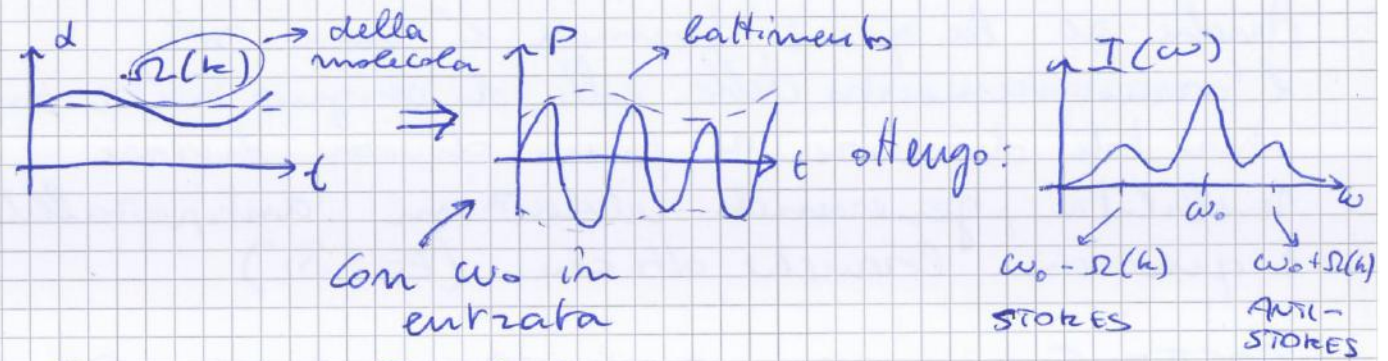 α
Ω(k) → della
molecola
t
⇒
P
battimento
t
Con ω₀ in
entrata
ottengo:
I(ω)
ω₀
ω
ω₀ - Ω(k)
STOKES
ω₀ + Ω(k)
ANTI-
STOKES